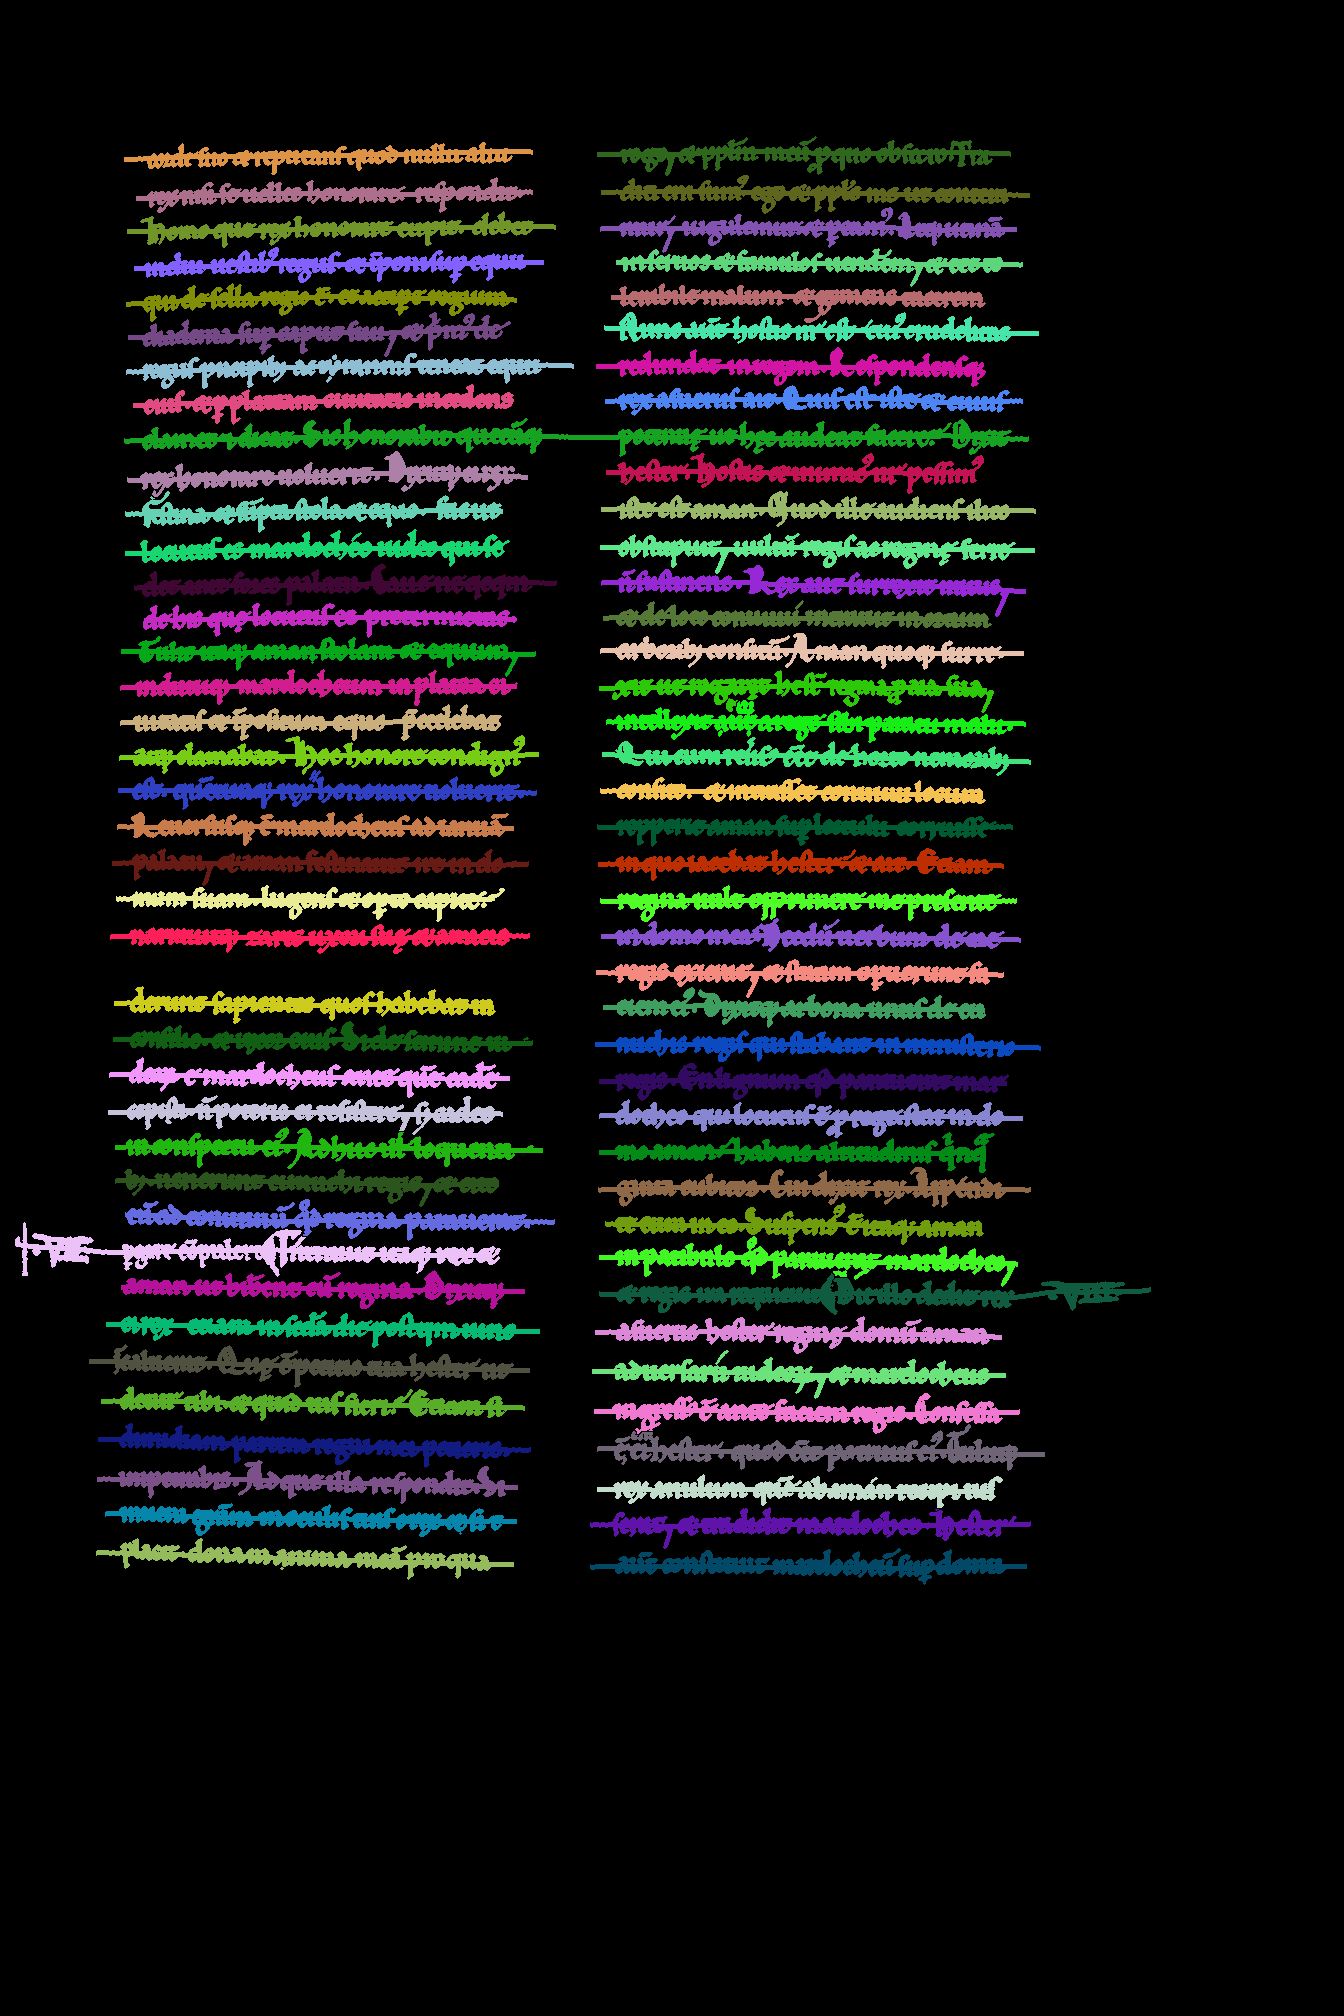 corde suo et reputans quod nullū aliū
rex nisi se vellet honorare respondit
Homo quē rex honorare cupit debet
indui vestib⁹ regiis et īponi suꝑ equū
qui de sella regis ē et accipe regium
diadema suꝑ caput suū, et pm⁹ de
regiis principib; ac tirannis teneat equū
eius et p plateam civitatis incedens
clamet et dicat Sic honorabit quēcūq;
rex honorare voluerit. Dixitq; ei rex
festina et sūpta stola et equo fac ut
locutus es mardocheo iudeo qui se
det ante fores palacii Cave ne qicqm
de his que locutus es pretermittas
Tulit itaq; aman stolam et equum,
indutūq; mardocheum in platea ci
vitatis et īpositum equo p̄cedebat
atq; clamabat Hoc honore condign⁹
est quēcumq; rex honorare voluerit
Reversusq; ē mardocheus ad ianuā
palacii, et aman festinavit ire in do
mum suam lugens et opto capite.
narravitq; zares uxori sue et amicis
derunt sapientes quos habebat in
consilio et uxor eius Si de semine iu
deoꝝ est mardocheus ante quē cadē
cepisti nō poteris ei resistere, sed cades
in conspectu ei⁹ Adhuc illis loquenti
b; venerunt eunuchi regis, et cito
eū ad convivium qd regina paraverat
pgere cōpulert Intravit itaq; rex et
aman ut bibēnt cū regina Dixitq;
ei rex etiam in scda die postqm vino
īcaluerat Que ē peticio tua hester ut
detur tibi et quid vis fieri Etiam si
dimidiam partem regni mei petieris
impetrabis Ad quem illa respondit Si
inveni gram in oculis tuis o rex et si t
placet dona m animā meā pro qua
rogo, et pplm meū p quo obsecro Tdi
ti eni sum⁹ ego et ppls ms ut conteram
mur, iugulemur et peam⁹ Atq; utinā
in servos et famulos vendēm, et esset to
lerabile malum et gemens tacerem
Nunc aūt hostis nr est cui⁹ crudelitas
redundat in regem Respondensq;
rex asuerus ait Quis est iste et cuius
potencie ut hec audeat facere Dixit
hester Hostis et inimic⁹ nr pessim⁹
iste est aman Quod ille audiens ilico
obstupuit, vultū regis ac regine ferre
n sustinens Rex aut surrexit iratus,
et de loco convivii intravit in ortum
arborib; consitū Aman quoq; surre
xit ut rogaret hestr regina p aia sua,
intellexit eni a rege sibi paratū malū
Qui cum revsus eēt de horto nemorib;
consito. et intrasset convivii locum
repperit aman sup lectulū corruisse
in quo iacebat hester et ait Etiam
reginā vult opprimere me presente
in domo mea Necdū verbum de ore
regis exierat, et statim opuerunt fa
ciem ei⁹ Dixitq; arbona unus de eu
nuchis regis qui stabant in ministerio
regis En lignum qd paraverat mar
docheo qui locutus ē p rege stat in do
mo aman habens altitudinis qinq
ginta cubitos Cui dixit rex Appendi
te eum in eo Suspens⁹ ē itaq; aman
in patibulo qd paraverat mardocheo,
et regis ira requievit Die illo dedit rex
asuerus hester regine domū aman
adversarii iudeoꝝ, et mardocheus
ingress⁹ ē ante faciem regis Confessa
ē eni hester quod eēt patruus ei⁹ Tulitq;
rex anulum que ab aman recepi ius
serat, et tradidit mardocheo Hester
aūt constituit mardocheū sup domū